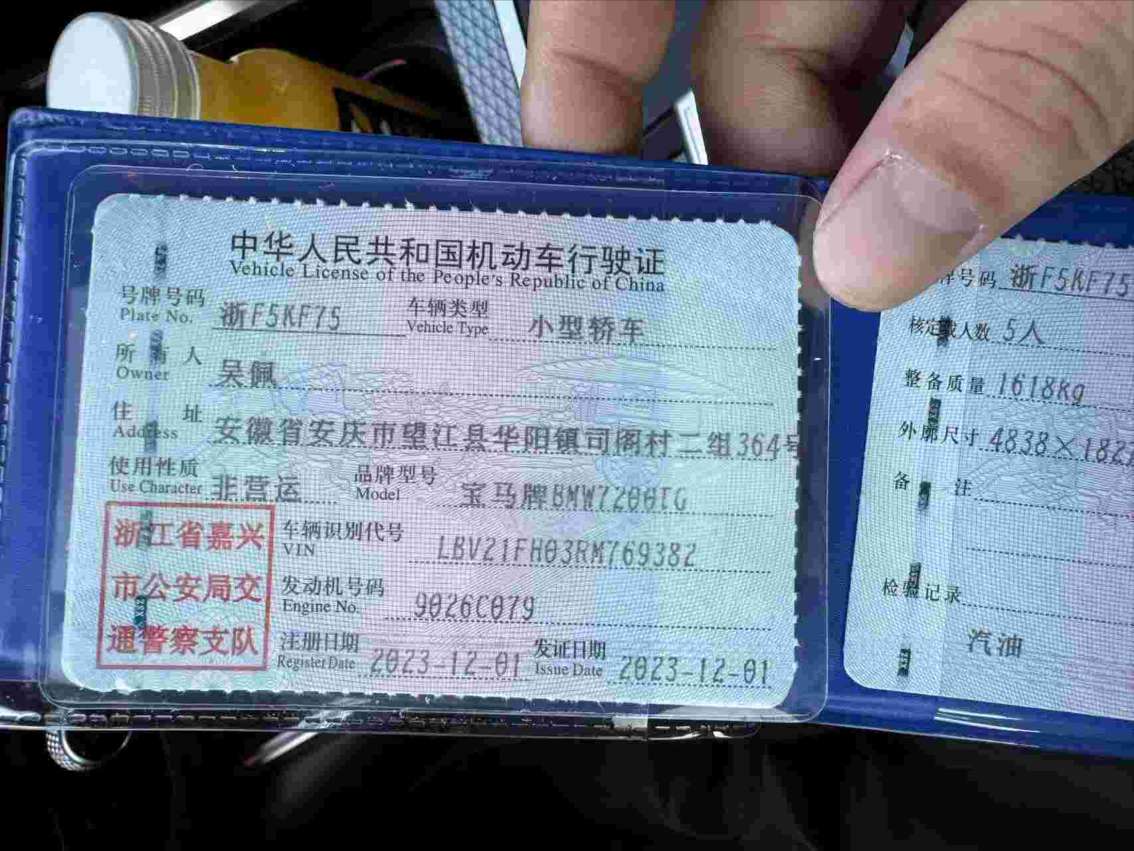 中华人民共和国机动车行驶证
Vehicle License of the People's Republic of China
号牌号码 浙F5KF75 车辆类型 小型轿车
Plate No. Vehicle Type
所有人 吴佩
Owner
住址 安徽省安庆市望江县华阳镇司阁村二组364号
Address
使用性质 非营运 品牌型号 宝马牌BMW7200IG
Use Character Model
浙江省嘉兴
市公安局交
通警察支队
车辆识别代号 LBV21FH03RM769382
VIN
发动机号码 9026C079
Engine No.
注册日期 2023-12-01 发证日期 2023-12-01
Register Date Issue Date
牌号码 浙F5KF75
核定载人数 5人
整备质量 1618kg
外廓尺寸 4838×182
备注
检验记录
汽油